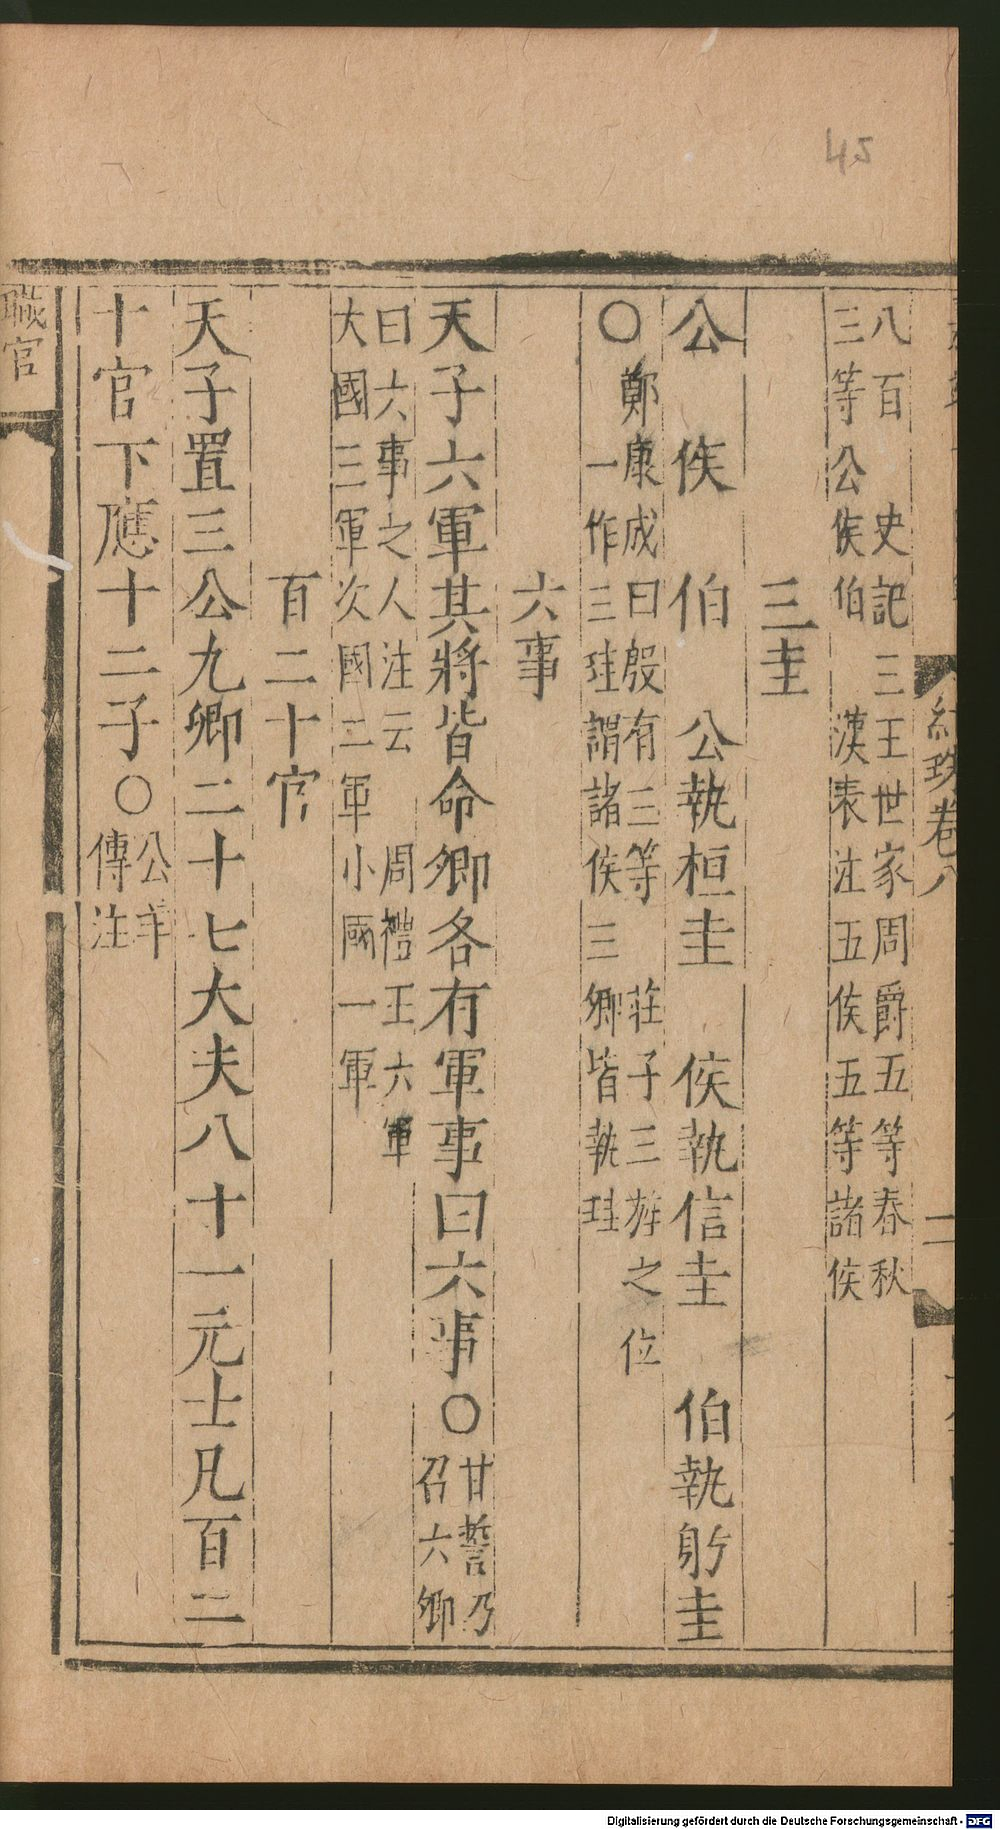 45
紺珠卷八
二
八百　史記三王世家周爵五等春秋
三等公侯伯　漢表注五侯五等諸侯
三圭
公　侯　伯　公執桓圭　侯執信圭　伯執躬圭
○鄭康成曰殷有三等　莊子三旌之位
一作三珪謂諸侯三卿皆執珪
六事
天子六軍其將皆命卿各有軍事曰六事○甘誓乃
召六卿
曰六事之人注云　周禮王六軍
大國三軍次國二軍小國一軍
百二十官
天子置三公九卿二十七大夫八十一元士凡百二
十官下應十二子○公羊
傳注
職官
Digitalisierung gefördert durch die Deutsche Forschungsgemeinschaft - DFG